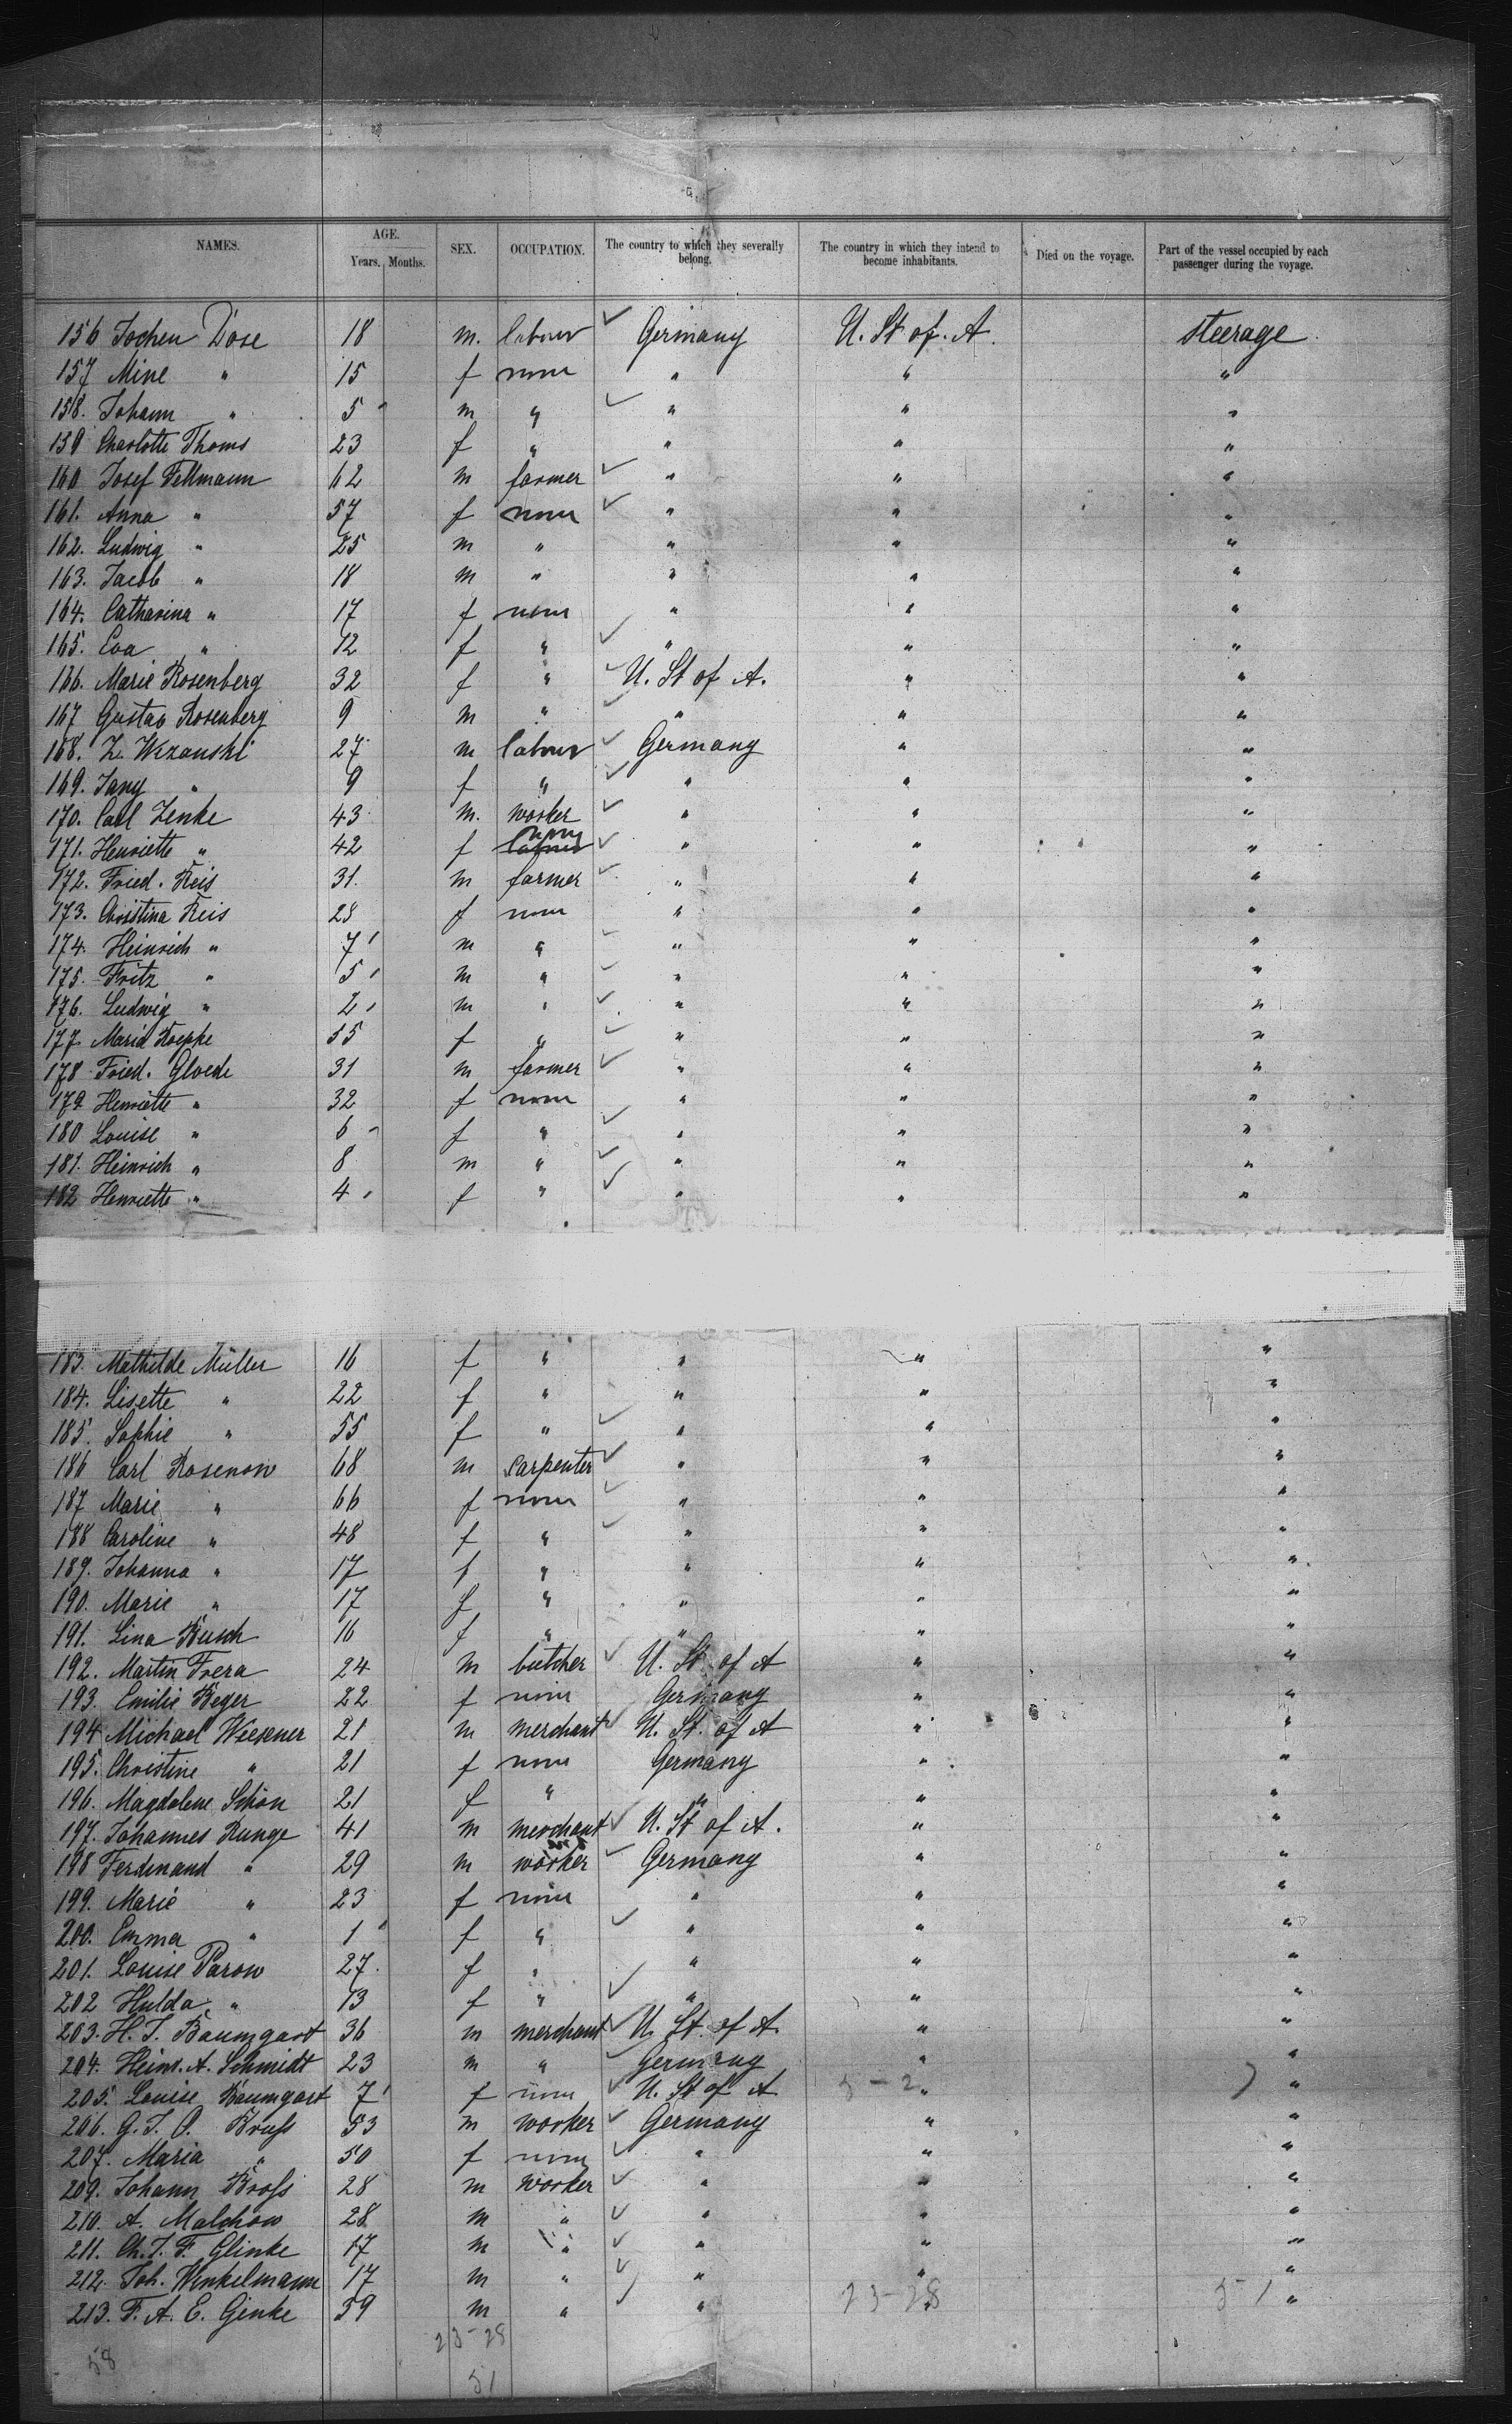 NAMES. AGE. Years. Months. SEX. OCCUPATION. The country to which they severally belong. The country in which they intend to become inhabitants. Died on the voyage. Part of the vessel occupied by each passenger during the voyage.
156 Jochen Dose 18 m. labour Germany U. St of. A. steerage
157 Mine " 15 f none " " "
158. Johann " 5 m " " " "
159 Charlotte Thoms 23 f " " " "
160 Josef Fellmann 62 m farmer " " "
161. Anna " 57 f none " " "
162. Ludwig " 25 m " " " "
163. Jacob " 18 m " " " "
164. Catharina " 17 f none " " "
165. Eva " 12 f " " " "
166. Marie Rosenberg 32 f " U. St of A. " "
167 Gustav Rosenberg 9 m " " " "
168. Z. Wizanski 27 m labour Germany " "
169. Jany " 9 f " " " "
170. Carl Zenke 43 m. worker " " "
171. Henriette " 42 f none " " "
172. Fried. Reis 31. m farmer " " "
173. Christina Reis 28 f none " " "
174. Heinrich " 7 m " " " "
175. Fritz " 5 m " " " "
176. Ludwig " 2 m " " " "
177 Maria Koepke 55 f " " " "
178 Fried. Gloede 31 m farmer " " "
179 Henriette " 32 f none " " "
180 Louise " 6 f " " " "
181. Heinrich " 8 m " " " "
182 Henriette " 4 f " " " "
183. Mathilde Müller 16 f " " " "
184. Lisette " 22 f " " " "
185. Sophie " 55 f " " " "
186 Carl Rosenow 68 m carpenter " " "
187 Marie " 66 f none " " "
188 Caroline " 48 f " " " "
189. Johanna " 17 f " " " "
190. Marie " 17 f " " " "
191. Lina Busch 16 f " " " "
192. Martin Frera 24 m butcher U. St of A " "
193. Emilie Beger 22 f none Germany " "
194 Michael Wiesener 21 m merchant U. St. of A " "
195. Christine " 21 f none Germany " "
196. Magdalene Schön 21 f " " " "
197. Johannes Runge 41 m merchant U. St of A. " "
198 Ferdinand " 29 m worker Germany " "
199. Marie " 23 f none " " "
200. Emma " 1 f " " " "
201. Louise Parow 27. f " " " "
202 Hulda " 13 f " " " "
203. H. J. Baumgart 36 m merchant U. St. of A. " "
204. Heinr. A. Schmidt 23 m " Germany " "
205. Louise Baumgart 7 f none U. St of A 5-2 " "
206. G. J. O. Bruss 53 m worker Germany " "
207. Maria " 50 f none " " "
209. Johann Bross 28 m worker " " "
210. A. Malchow 28 m " " " "
211. Ch. J. F. Glinke 17 m " " " "
212. Joh. Winkelmann 17 m " " " "
213. F. A. E. Genke 59 m " " 23-28 " 51 "
23-28
58
51